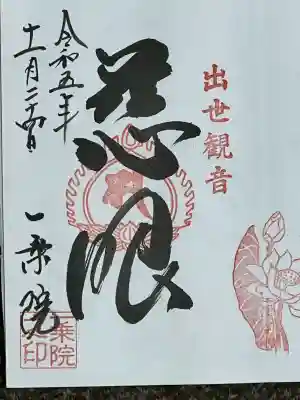 出世観音
慈眼
令和五年
十一月二十四日
一乗院
一乗院印